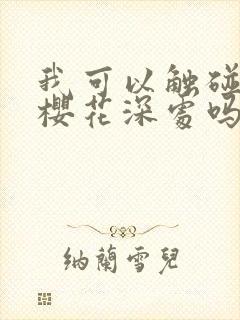 我可以触碰
樱花深处吗
纳兰雪儿